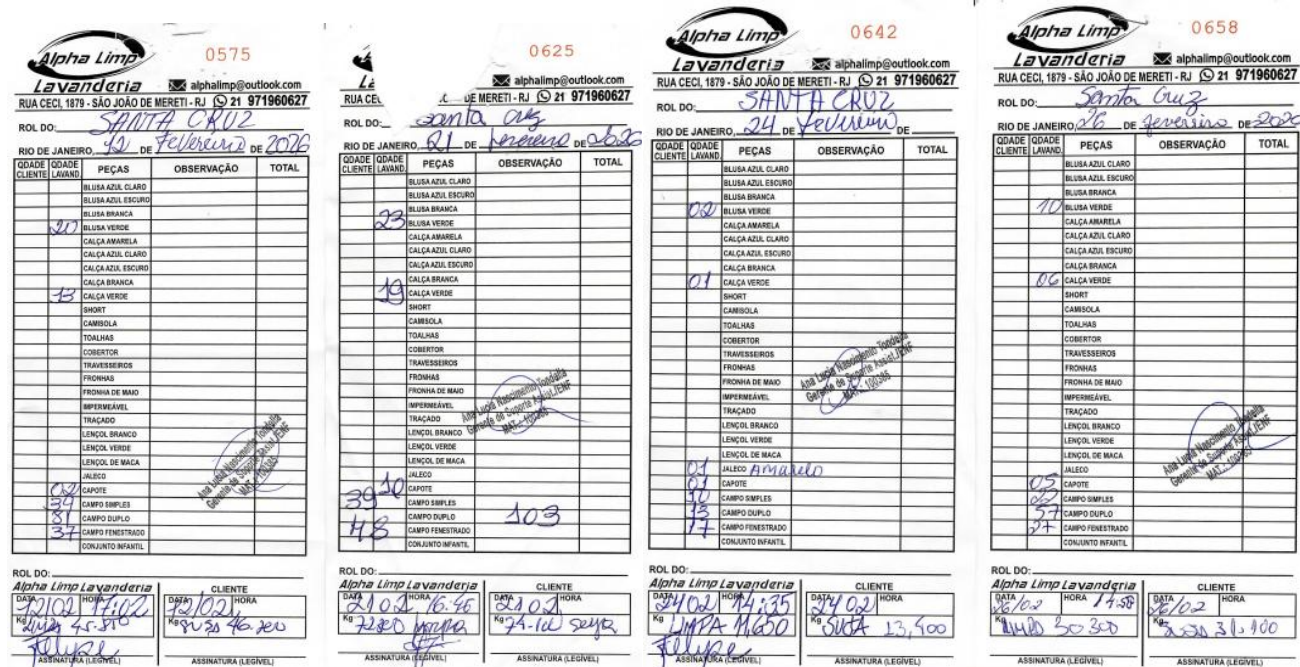 Alpha Limp
Lavanderia
0575
alphalimp@outlook.com
RUA CECI, 1879 - SÃO JOÃO DE MERETI - RJ 21 971960627
ROL DO: SANTA CRUZ
RIO DE JANEIRO, 12 DE Fevereiro DE 2026
QDADE CLIENTE QDADE LAVAND. PEÇAS OBSERVAÇÃO TOTAL
BLUSA AZUL CLARO
BLUSA AZUL ESCURO
BLUSA BRANCA
20 BLUSA VERDE
CALÇA AMARELA
CALÇA AZUL CLARO
CALÇA AZUL ESCURO
CALÇA BRANCA
13 CALÇA VERDE
SHORT
CAMISOLA
TOALHAS
COBERTOR
TRAVESSEIROS
FRONHAS
FRONHA DE MAIO
IMPERMEÁVEL
TRAÇADO
LENÇOL BRANCO
LENÇOL VERDE
LENÇOL DE MACA
JALECO
02 CAPOTE
34 CAMPO SIMPLES
81 CAMPO DUPLO
37 CAMPO FENESTRADO
CONJUNTO INFANTIL
Ana Lucia Nascimento Tondella
Gerente de Suporte Assist./ENF
MAT.: 100385
ROL DO:
Alpha Limp Lavanderia CLIENTE
DATA 12/02 HORA 17:02 DATA 12/02 HORA
Kg Kg
Felype
ASSINATURA (LEGÍVEL) ASSINATURA (LEGÍVEL)
0625
alphalimp@outlook.com
RUA CE DE MERETI - RJ 21 971960627
ROL DO: Santa Cruz
RIO DE JANEIRO, 21 DE fevereiro DE 2026
QDADE CLIENTE QDADE LAVAND. PEÇAS OBSERVAÇÃO TOTAL
BLUSA AZUL CLARO
BLUSA AZUL ESCURO
BLUSA BRANCA
23 BLUSA VERDE
CALÇA AMARELA
CALÇA AZUL CLARO
CALÇA AZUL ESCURO
CALÇA BRANCA
19 CALÇA VERDE
SHORT
CAMISOLA
TOALHAS
COBERTOR
TRAVESSEIROS
FRONHAS
FRONHA DE MAIO
IMPERMEÁVEL
TRAÇADO
LENÇOL BRANCO
LENÇOL VERDE
LENÇOL DE MACA
JALECO
10 CAPOTE
39 CAMPO SIMPLES
CAMPO DUPLO 103
48 CAMPO FENESTRADO
CONJUNTO INFANTIL
Ana Lucia Nascimento Tondella
Gerente de Suporte Assist./ENF
MAT.: 100385
ROL DO:
Alpha Limp Lavanderia CLIENTE
DATA 21 02 HORA 16:46 DATA 21 02 HORA
Kg limpa Kg suja
ASSINATURA (LEGÍVEL) ASSINATURA (LEGÍVEL)
Alpha Limp
Lavanderia
0642
alphalimp@outlook.com
RUA CECI, 1879 - SÃO JOÃO DE MERETI - RJ 21 971960627
ROL DO: SANTA CRUZ
RIO DE JANEIRO, 24 DE Fevereiro DE
QDADE CLIENTE QDADE LAVAND. PEÇAS OBSERVAÇÃO TOTAL
BLUSA AZUL CLARO
BLUSA AZUL ESCURO
BLUSA BRANCA
02 BLUSA VERDE
CALÇA AMARELA
CALÇA AZUL CLARO
CALÇA AZUL ESCURO
CALÇA BRANCA
01 CALÇA VERDE
SHORT
CAMISOLA
TOALHAS
COBERTOR
TRAVESSEIROS
FRONHAS
FRONHA DE MAIO
IMPERMEÁVEL
TRAÇADO
LENÇOL BRANCO
LENÇOL VERDE
LENÇOL DE MACA
01 JALECO Amarelo
01 CAPOTE
10 CAMPO SIMPLES
13 CAMPO DUPLO
17 CAMPO FENESTRADO
CONJUNTO INFANTIL
Ana Lucia Nascimento Tondella
Gerente de Suporte Assist./ENF
MAT.: 100385
ROL DO:
Alpha Limp Lavanderia CLIENTE
DATA 24 02 HORA 14:35 DATA 24 02 HORA
Kg LIMPA 11,650 Kg SUJA 13,400
Felype
ASSINATURA (LEGÍVEL) ASSINATURA (LEGÍVEL)
Alpha Limp
Lavanderia
0658
alphalimp@outlook.com
RUA CECI, 1879 - SÃO JOÃO DE MERETI - RJ 21 971960627
ROL DO: Santa Cruz
RIO DE JANEIRO, 26 DE fevereiro DE 2026
QDADE CLIENTE QDADE LAVAND. PEÇAS OBSERVAÇÃO TOTAL
BLUSA AZUL CLARO
BLUSA AZUL ESCURO
BLUSA BRANCA
10 BLUSA VERDE
CALÇA AMARELA
CALÇA AZUL CLARO
CALÇA AZUL ESCURO
CALÇA BRANCA
06 CALÇA VERDE
SHORT
CAMISOLA
TOALHAS
COBERTOR
TRAVESSEIROS
FRONHAS
FRONHA DE MAIO
IMPERMEÁVEL
TRAÇADO
LENÇOL BRANCO
LENÇOL VERDE
LENÇOL DE MACA
JALECO
05 CAPOTE
22 CAMPO SIMPLES
57 CAMPO DUPLO
27 CAMPO FENESTRADO
CONJUNTO INFANTIL
Ana Lucia Nascimento Tondella
Gerente de Suporte Assist./ENF
MAT.: 100385
ROL DO:
Alpha Limp Lavanderia CLIENTE
DATA 26/02 HORA 14:58 DATA 26/02 HORA
Kg 30 300 Kg 31.100
ASSINATURA (LEGÍVEL) ASSINATURA (LEGÍVEL)